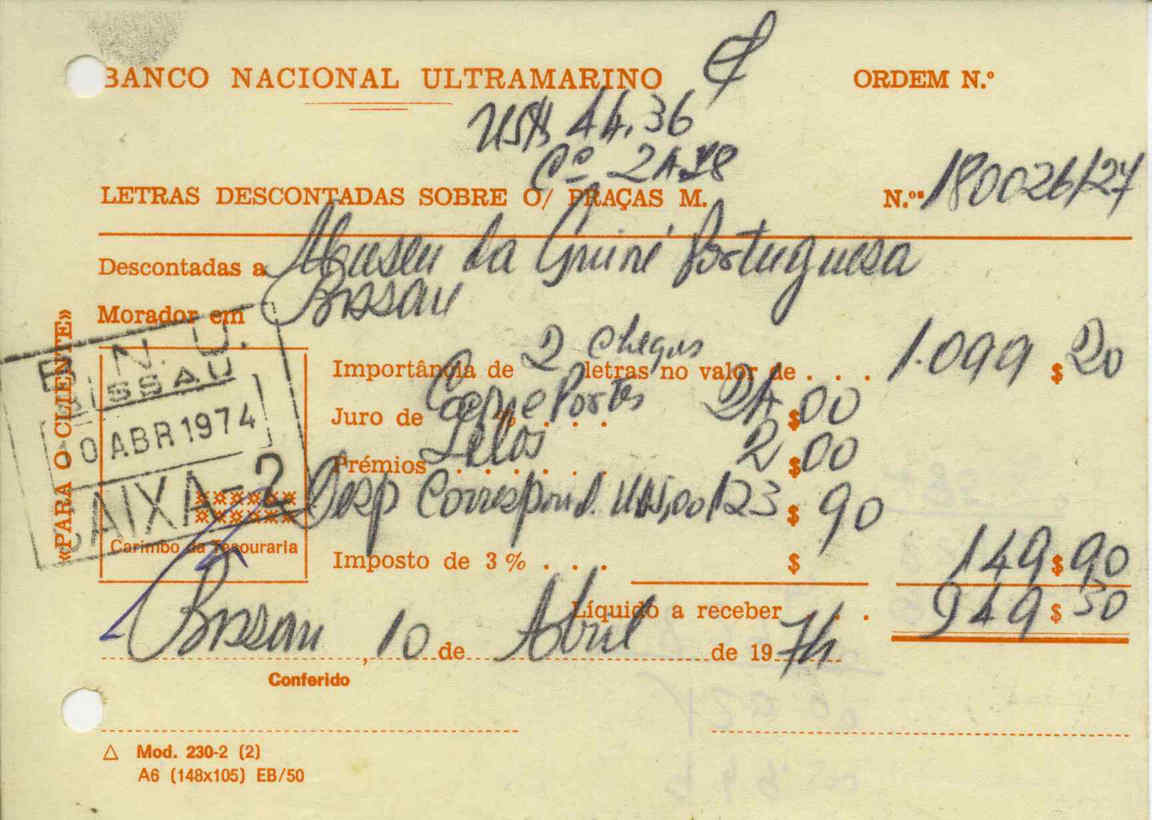 BANCO NACIONAL ULTRAMARINO
ORDEM N.º
US$ 44,36
Cº 24.78
LETRAS DESCONTADAS SOBRE O/ PRAÇAS M.
N.ºˢ 180026/27
Descontadas a Museu da Guiné Portuguesa
Morador em Bissau
«PARA O CLIENTE»
B. N. U.
BISSAU
10 ABR 1974
CAIXA-2
Carimbo da Tesouraria
Importância de 2 cheques letras no valor de . . . 1.099 $ 20
Juro de % . . . Portes 24 $ 00
Prémios . . . . . . Selos 2 $ 00
Desp Correspond. 123 $ 90
Imposto de 3 % . . . $ 149 $ 90
Líquido a receber . . 949 $ 30
Bissau, 10 de Abril de 1974
Conferido
△ Mod. 230-2 (2)
A6 (148x105) EB/50